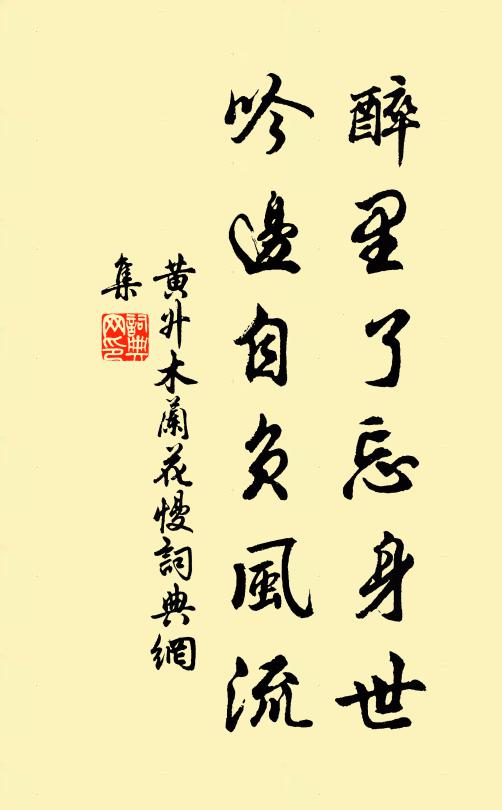 醉里了忘身世
吟邊自負風流
黄升木蘭花慢詞典網
集
詞典
网印